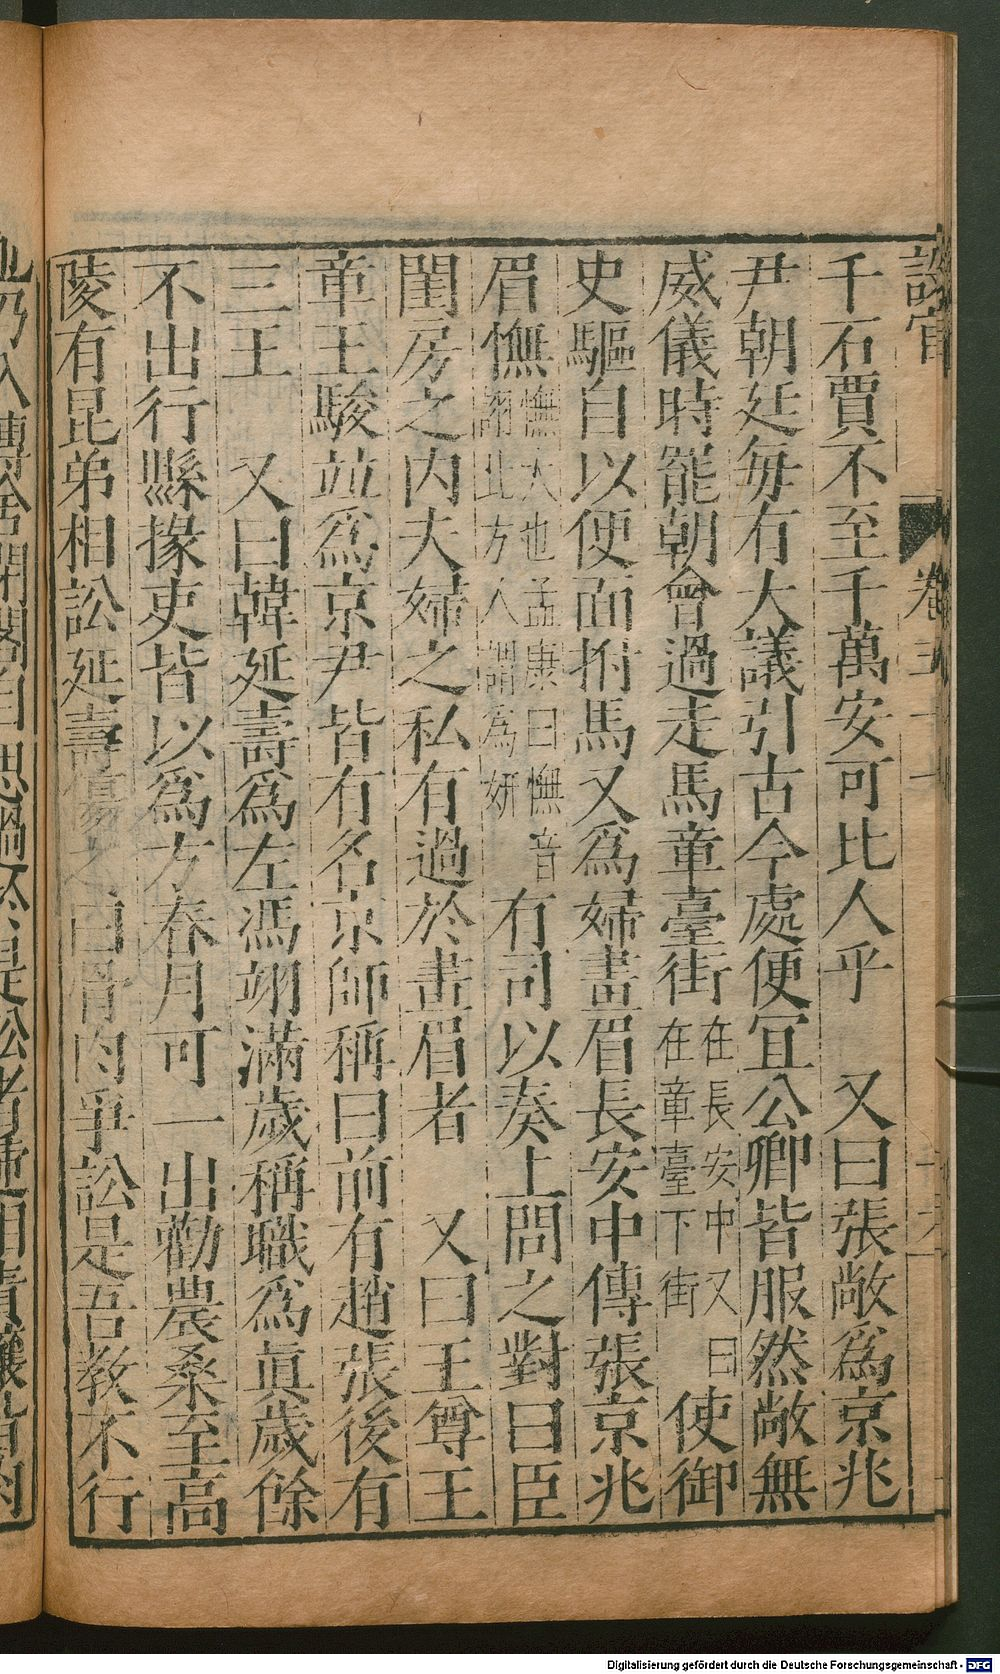 設官
千石賈不至千萬安可比人乎　又曰張敞爲京兆
尹朝廷每有大議引古今處便宜公卿皆服然敞無
威儀時罷朝會過走馬章臺街在長安中又曰在章臺下街使御
史驅自以便面拊馬又爲婦畫眉長安中傳張京兆
眉憮憮大也孟康曰憮音詡北方人謂爲妍有司以奏上問之對曰臣
閨房之内夫婦之私有過於畫眉者　又曰王尊王
章王駿並爲京尹皆有名京師稱曰前有趙張後有
三王　又曰韓延壽爲左馮翊滿歲稱職爲眞歲餘
不出行縣掾吏皆以爲方春月可一出勸農桑至高
陵有昆弟相訟延壽傷之曰骨肉爭訟是吾教不行
也乃入傳舍閉閤自思過於是訟者
Digitalisierung gefördert durch die Deutsche Forschungsgemeinschaft - DFG